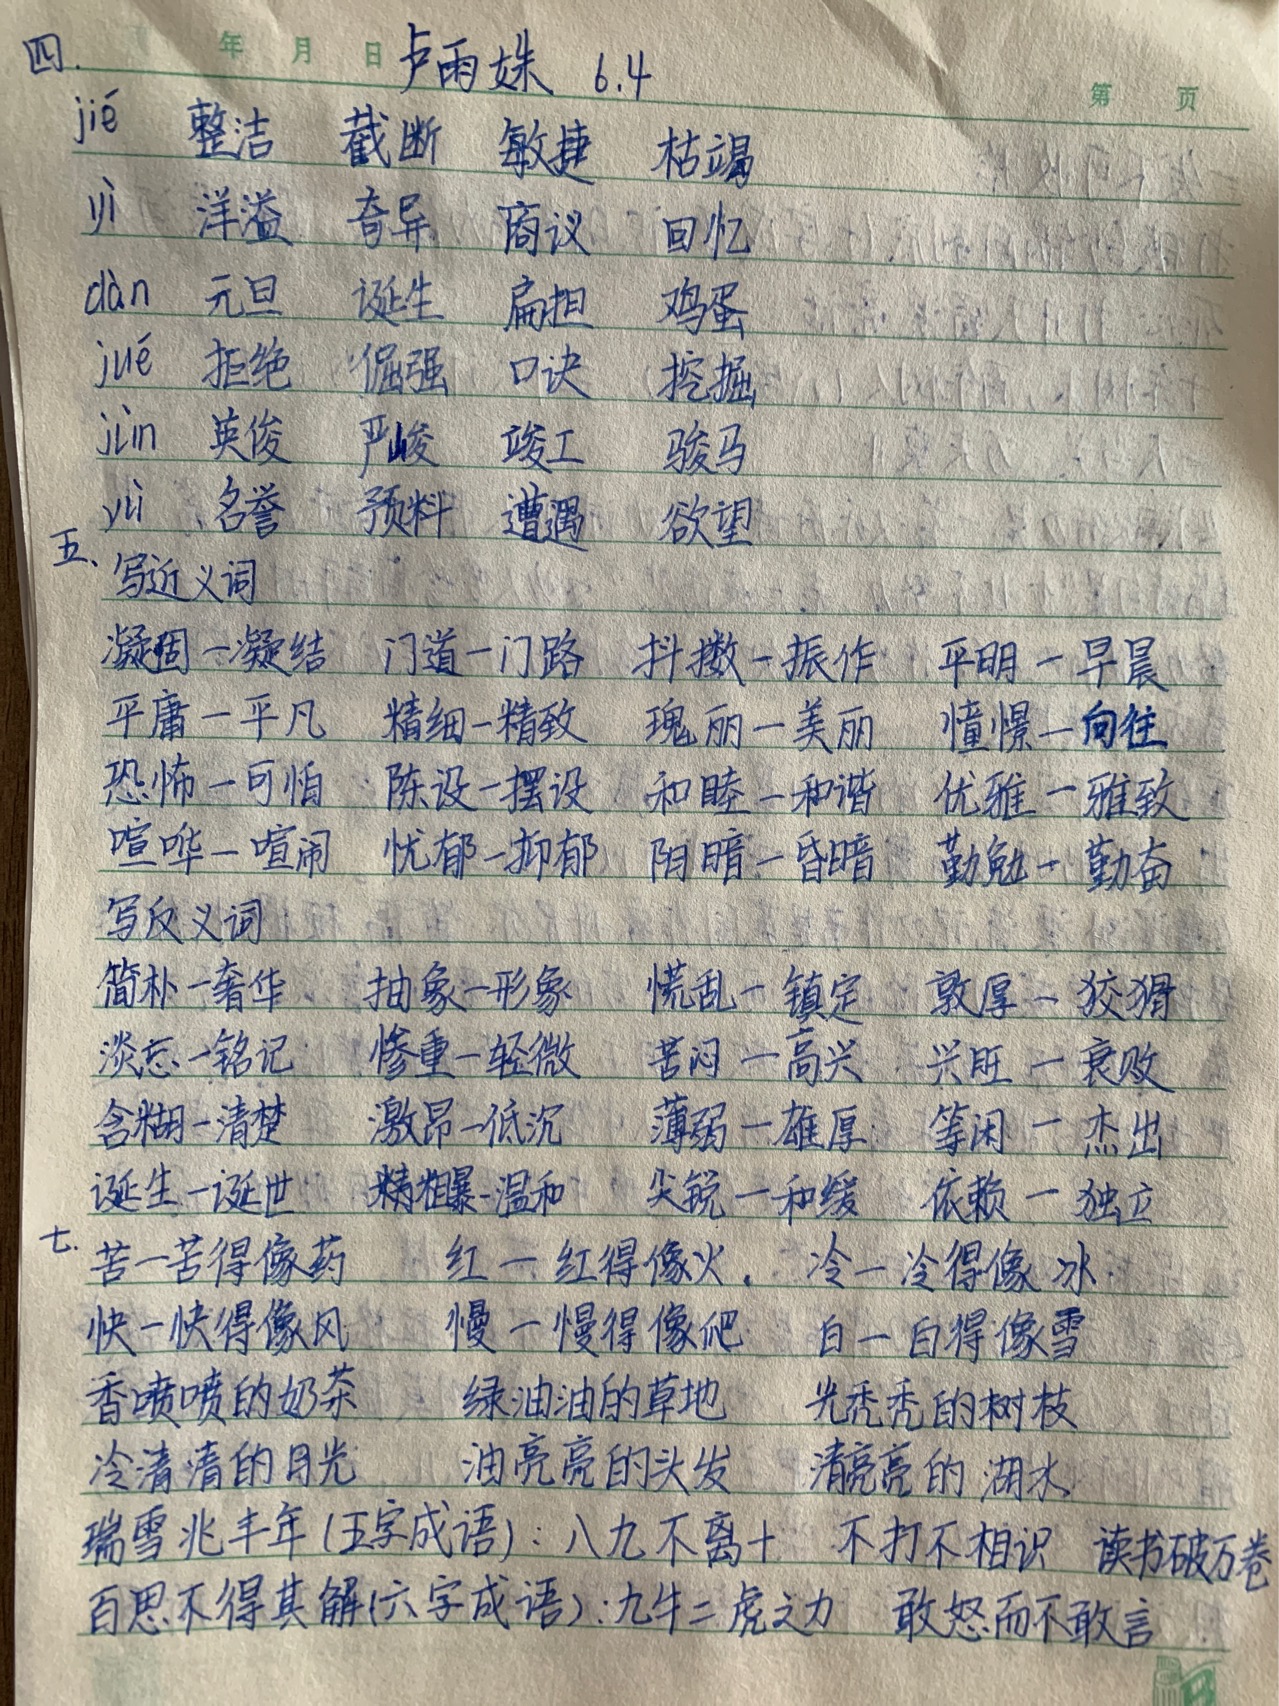 年 月 日 卢雨姝 6.4
第 页
四.
jié 整洁 截断 敏捷 枯竭
yì 洋溢 奇异 商议 回忆
dàn 元旦 诞生 扁担 鸡蛋
jué 拒绝 倔强 口诀 挖掘
jùn 英俊 严峻 竣工 骏马
yù 名誉 预料 遭遇 欲望
五、写近义词
凝固—凝结 门道—门路 抖擞—振作 平明—早晨
平庸—平凡 精细—精致 瑰丽—美丽 憧憬—向往
恐怖—可怕 陈设—摆设 和睦—和谐 优雅—雅致
喧哗—喧闹 忧郁—抑郁 阴暗—昏暗 勤勉—勤奋
写反义词
简朴—奢华 抽象—形象 慌乱—镇定 敦厚—狡猾
淡忘—铭记 惨重—轻微 苦闷—高兴 兴旺—衰败
含糊—清楚 激昂—低沉 薄弱—雄厚 等闲—杰出
诞生—诞世 粗曝—温和 尖锐—和缓 依赖—独立
七.苦—苦得像药 红—红得像火. 冷—冷得像冰.
快—快得像风 慢—慢得像爬 白—白得像雪
香喷喷的奶茶 绿油油的草地 光秃秃的树枝
冷清清的月光 油亮亮的头发 清亮亮的湖水
瑞雪兆丰年(五字成语):八九不离十 不打不相识 读书破万卷
百思不得其解(六字成语):九牛二虎之力 敢怒而不敢言